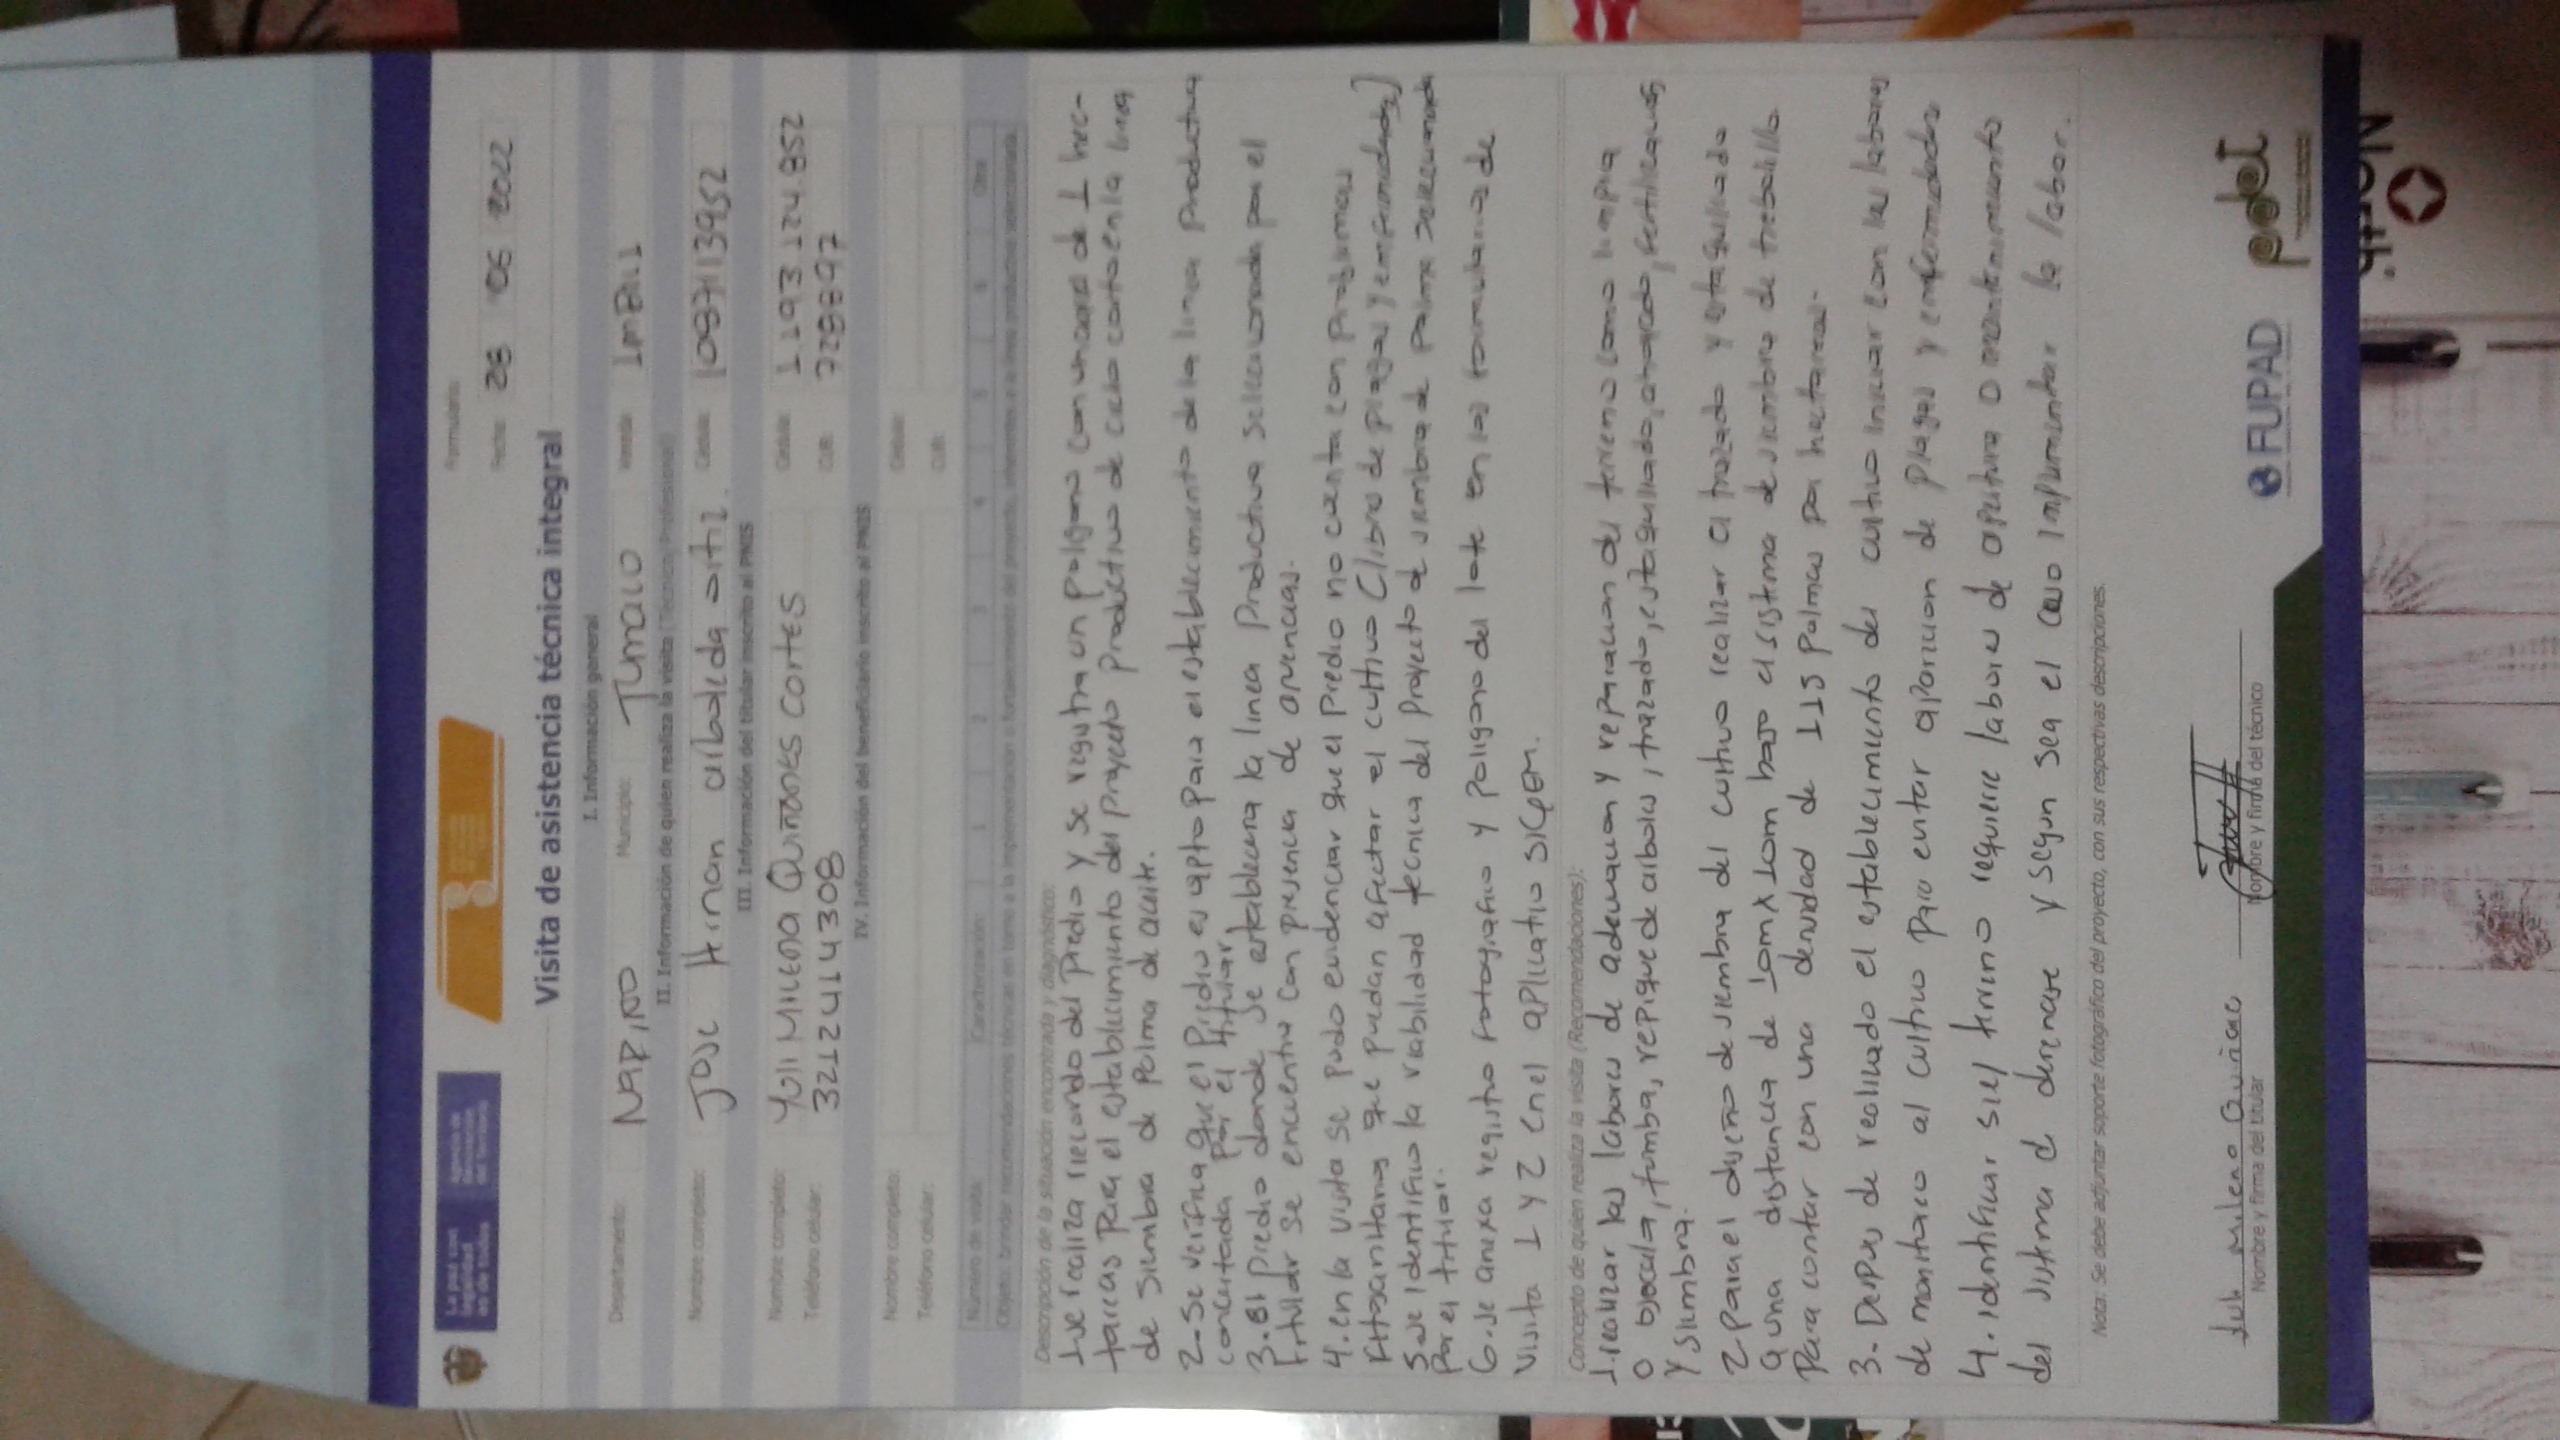 La paz con legalidad es de todos
Agencia de Renovación del Territorio
Formulario:
Fecha: 28 06 2022
Visita de asistencia técnica integral
I. Información general
Departamento: NARIÑO Municipio: TUMACO Vereda: IMBILI
II. Información de quien realiza la visita (Técnico/Profesional)
Nombre completo: Jose Hernan arboleda ortiz. Cédula: 1087113952
III. Información del titular inscrito al PNIS
Nombre completo: YUli Milena Quiñones Cortes Cédula: 1193124852
Teléfono celular: 3212414308 CUB: 728897
IV. Información del beneficiario inscrito al PNIS
Nombre completo: Cédula:
Teléfono celular: CUB:
Número de visita: Caracterización: 1 2 3 4 5 6 Otra
Objeto: brindar recomendaciones técnicas en torno a la implementación o fortalecimiento del proyecto, inherentes a la línea productiva seleccionada.
Descripción de la situación encontrada y diagnóstico:
1-se realiza recorrido del Predio y se registra un poligono con un area de 1 hec-
tareas para el establecimiento del proyecto productivo de ciclo corto en la linea
de siembra de Palma de aceite.
2-Se verifica que el Predio es apto para el establecimiento de la linea productiva
concertada por el titular.
3-El Predio donde se establecera la linea Productiva seleccionada por el
titular se encuentra con presencia de arvencias.
4.en la visita se pudo evidenciar que el Predio no cuenta con problemas
fitosanitarios que puedan afectar el cultivo (libre de plagas y enfermedades)
5-se identifico la viabilidad tecnica del Proyecto de siembra de palma seleccionada
por el titular.
6-se anexa registro fotografico y poligono del lote en los formularios de
visita 1 y 2 en el aplicativo SIGEM.
Concepto de quien realiza la visita (Recomendaciones):
1-realizar las labores de adecuacion y reparacion del terreno como limpia
o socala, tumba, repique de arboles, trazado, estaquillado, ahoyado, fertilizacion
y siembra.
2-para el diseño de siembra del cultivo realizar el trazado y estaquillado
a una distancia de 10m x 10m bajo el sistema de siembra de trebolillo
para contar con una densidad de 115 palmas por hectareas.
3. Despues de realizado el establecimiento del cultivo iniciar con las labores
de monitoreo al cultivo para evitar aparicion de plagas y enfermedades
4. identificar si el terreno requiere labores de apertura o mantenimiento
del sistema de drenaje y segun sea el caso implementar la labor.
Nota: Se debe adjuntar soporte fotográfico del proyecto, con sus respectivas descripciones.
Yuli milena Quiñac
Nombre y firma del titular
Nombre y firma del técnico
FUPAD
pdet